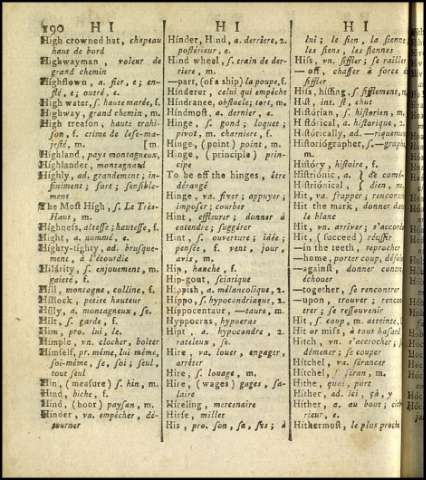 190 H I
High crowned hat, chapeau
haut de bord
Highwayman, voleur de
grand chemin
Highflown, a. fier, e; en-
flé, e; outré, e.
High water, s. haute marée, f.
Highway, grand chemin, m.
High treason, haute trahi-
son, f. crime de lese-ma-
jesté, m. [m.
Highland, pays montagneux,
Highlander, montagnard
Highly, ad. grandement; in-
finiment; fort; sensible-
ment
The Most High, s. Le Très-
Haut, m.
Highness, altesse; hautesse, f.
Hight, a. nommé, e.
Highty-tighty, ad. brusque-
ment, à l'étourdie
Hilarity, s. enjouement, m.
gaieté, f.
Hill, montagne, colline, f.
Hillock, petite hauteur
Hilly, a. montagneux, se.
Hilt, s. garde, f.
Him, pro. lui, le.
Himple, vn. clocher, boiter
Himself, pr. même, lui même,
soi-même, se, soi; seul,
tout seul
Hin, (measure) s. hin, m.
Hind, biche, f.
Hind, (boor) paysan, m.
Hinder, va. empêcher, dé-
tourner
H I
Hinder, Hind, a. derriere, 2.
postérieur, e.
Hind wheel, s. train de der-
riere, m.
—part, (of a ship) la poupe, f.
Hinderer, celui qui empêche
Hindrance, obstacle; tort, m.
Hindmost, a. dernier, e.
Hinge, s. gond; loquet;
pivot, m. charniere, f.
Hinge, (point) point, m.
Hinge, (principle) prin-
cipe
To be off the hinges, être
dérangé
Hinge, va. fixer, appuyer;
imposer; courber
Hint, effleurer; donner à
entendre; suggérer
Hint, s. ouverture; idée;
pensée, f. vent, jour,
avis, m.
Hip, hanche, f.
Hip-gout, sciatique
Hippish, a. mélancolique, 2.
Hippo, s. hypocondriaque, 2.
Hippocentaur, —taure, m.
Hyppocras, hypocras
Hipt, a. hypocondre, 2.
rateleux, se.
Hire, va. louer, engager,
arrêter
Hire, s. louage, m.
Hire, (wages) gages, sa-
laire
Hireling, mercenaire
Hirse, miller
His, pro. son, sa, ses; à
H I
lui; le sien, la sienne,
les siens, les siennes
Hiss, vn. siffler; se railler
—off, chasser à force de
siffler
Hiss, hissing, s. sifflement, m.
Hist, int. st, chut
Histórian, s. historien, m.
Histórical, a. historique, 2.
Histórically, ad. —riquement
Historiógrapher, s. —graphe,
m.
History, histoire, f.
Histriónic, a. } de comé-
Histriónical } dien, m.
Hit, va. frapper, rencontrer
Hit the mark, donner dans
le blanc
Hit, vn. arriver; s'accorder
Hit, (succeed) réussir
—in the teeth, reprocher
—home, porter coup, désoler
—against, donner contre,
échouer
—together, se rencontrer
—upon, trouver; rencon-
trer; se ressouvenir
Hit, s. coup, m. atteinte, f.
Hit or miss, à tout hasard
Hitch, vn. s'accrocher; se
démener; se couper
Hitchel, va. sérancer
Hitchel, s. séran, m.
Hithe, quai, port
Hither, ad. ici, çà, y
Hither, a. au bout; cité-
rieur, e.
Hithermost, le plus proche